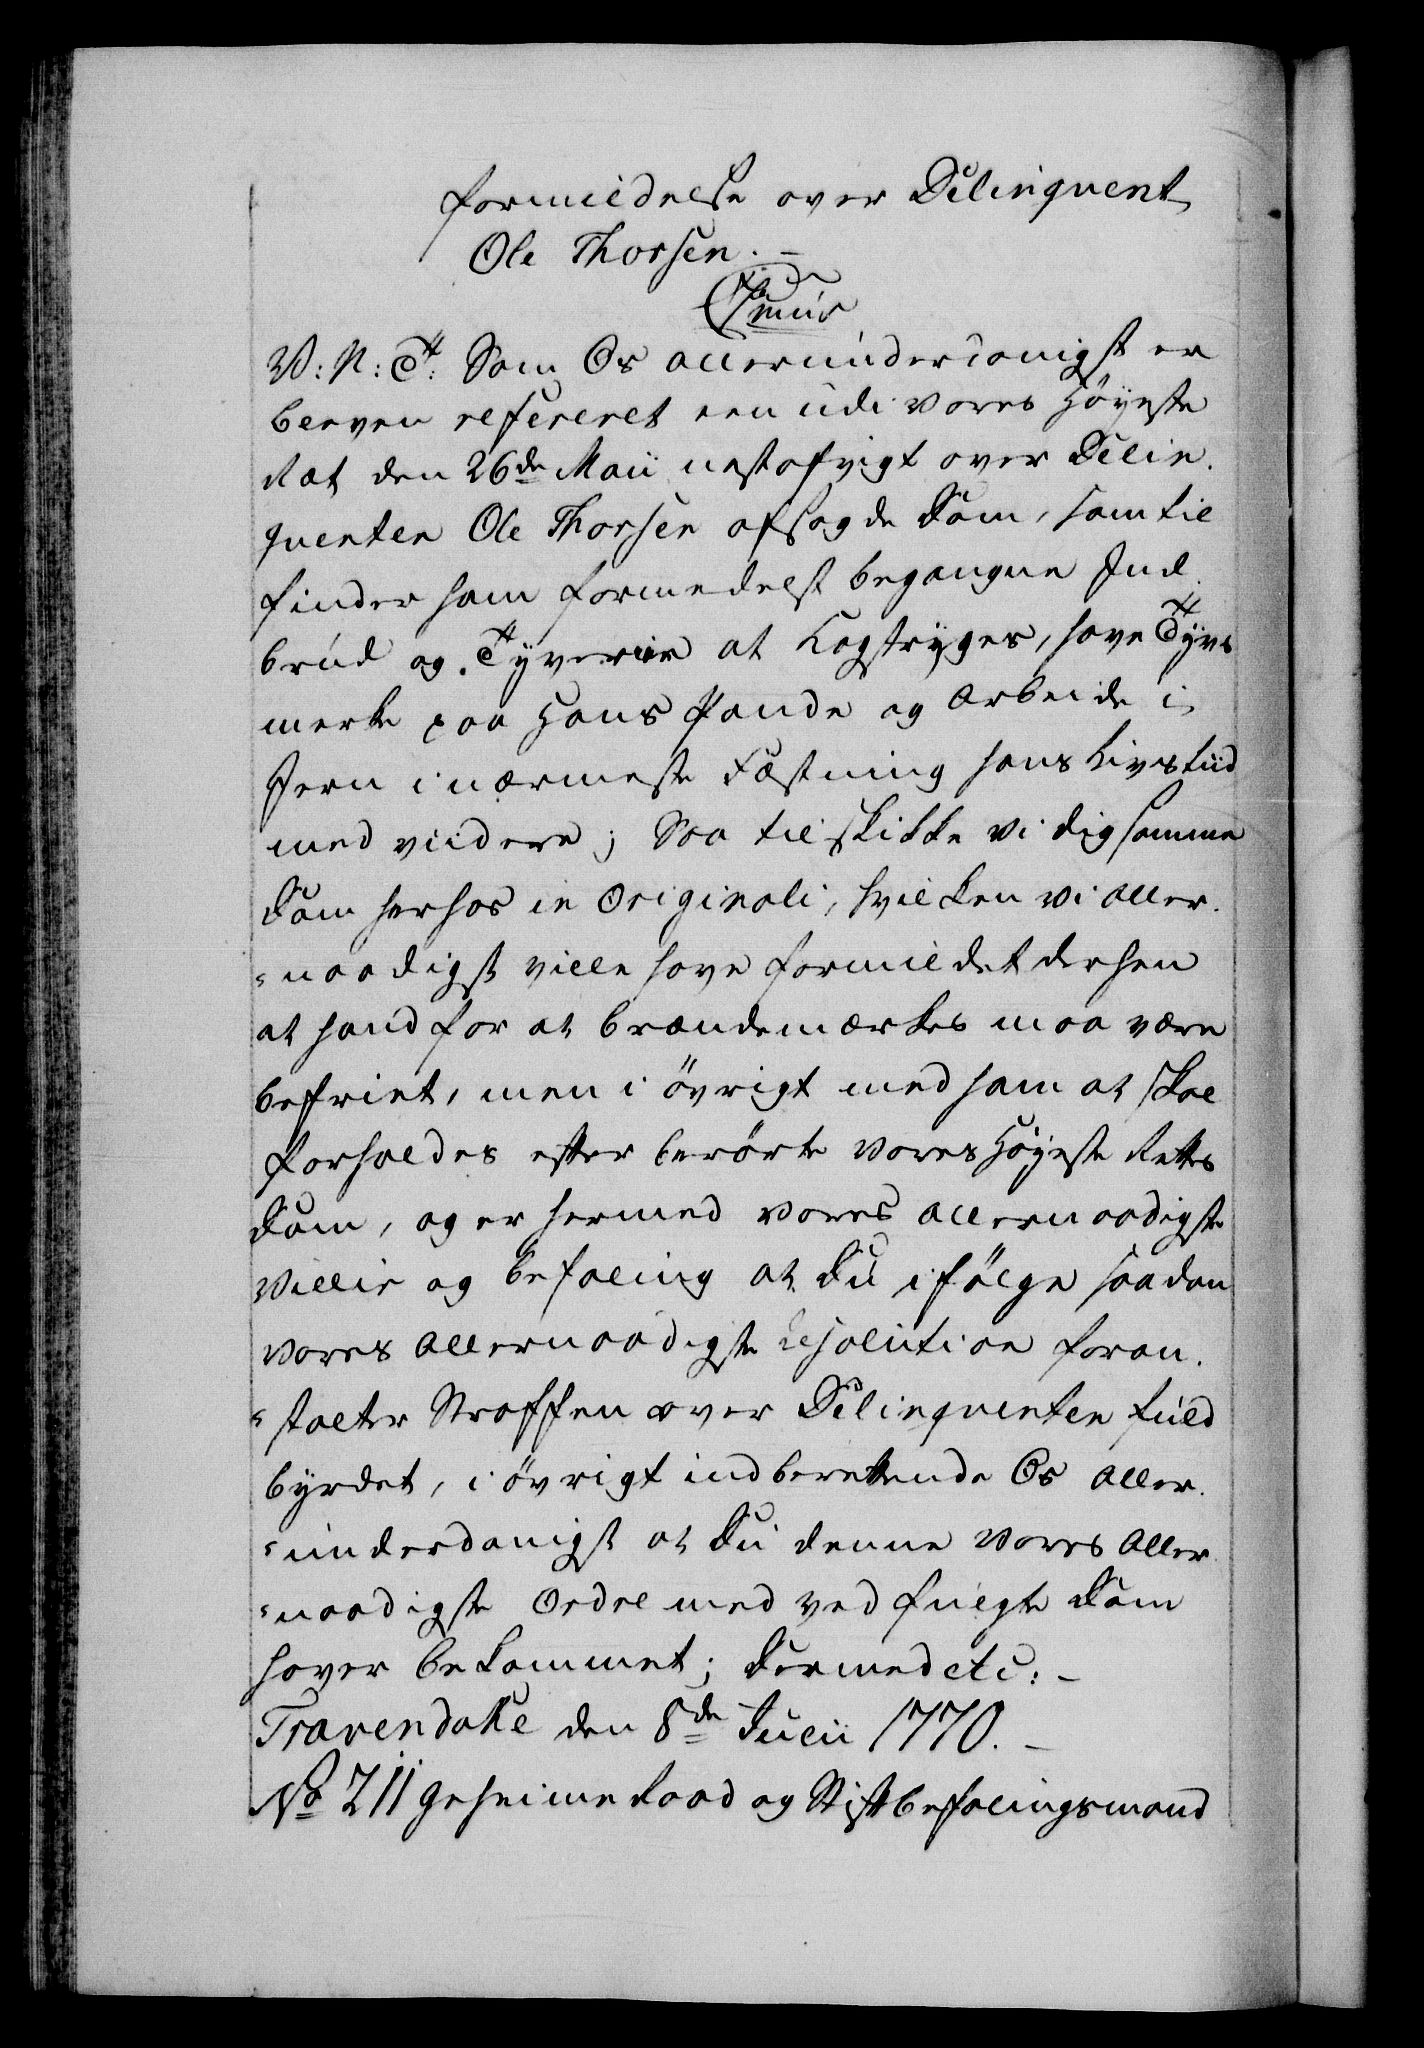 formildelse over Delinqvent
Ole Thorsen. –
V: N: T: Som Os allerunderdanigst er
bleven refereret een udi vores Høyeste
Ræt den 26de Maii nestafvigt over Delin-
qventen Ole Thorsen afsagde Dom, som til
finder ham formedelst begangne Ind-
brud og Tyverier at Kagstryges, have Tyvs
merke paa Hans Pande og Arbeide i
Jern i nærmeste Fæstning hans Livstiid
med viidere; Saa tilskikke vi dig samme
Dom herhos in Originali, hvilken vi aller-
naadigst ville have formildet derhen
at hand for at brændemærkes maa være
befriet, men i øvrigt med ham at skal
forholdes efter berørte vores Høyeste Retts
Dom, og er hermed vores allernaadigste
Villie og Befaling at Du i følge saadan
vores Allernaadigste Resolution foran-
stalter Straffen over Delinqventen fuld
byrdet, i øvrigt indberettende Os Aller-
underdanigst at Du denne vores Aller-
naadigste Ordre med ved fuigte Dom
haver bekommet; Dermed etc: –
Travendahl den 8de Julii 1770. –
No 211 Geheime Raad og Stiftbefalingsmand